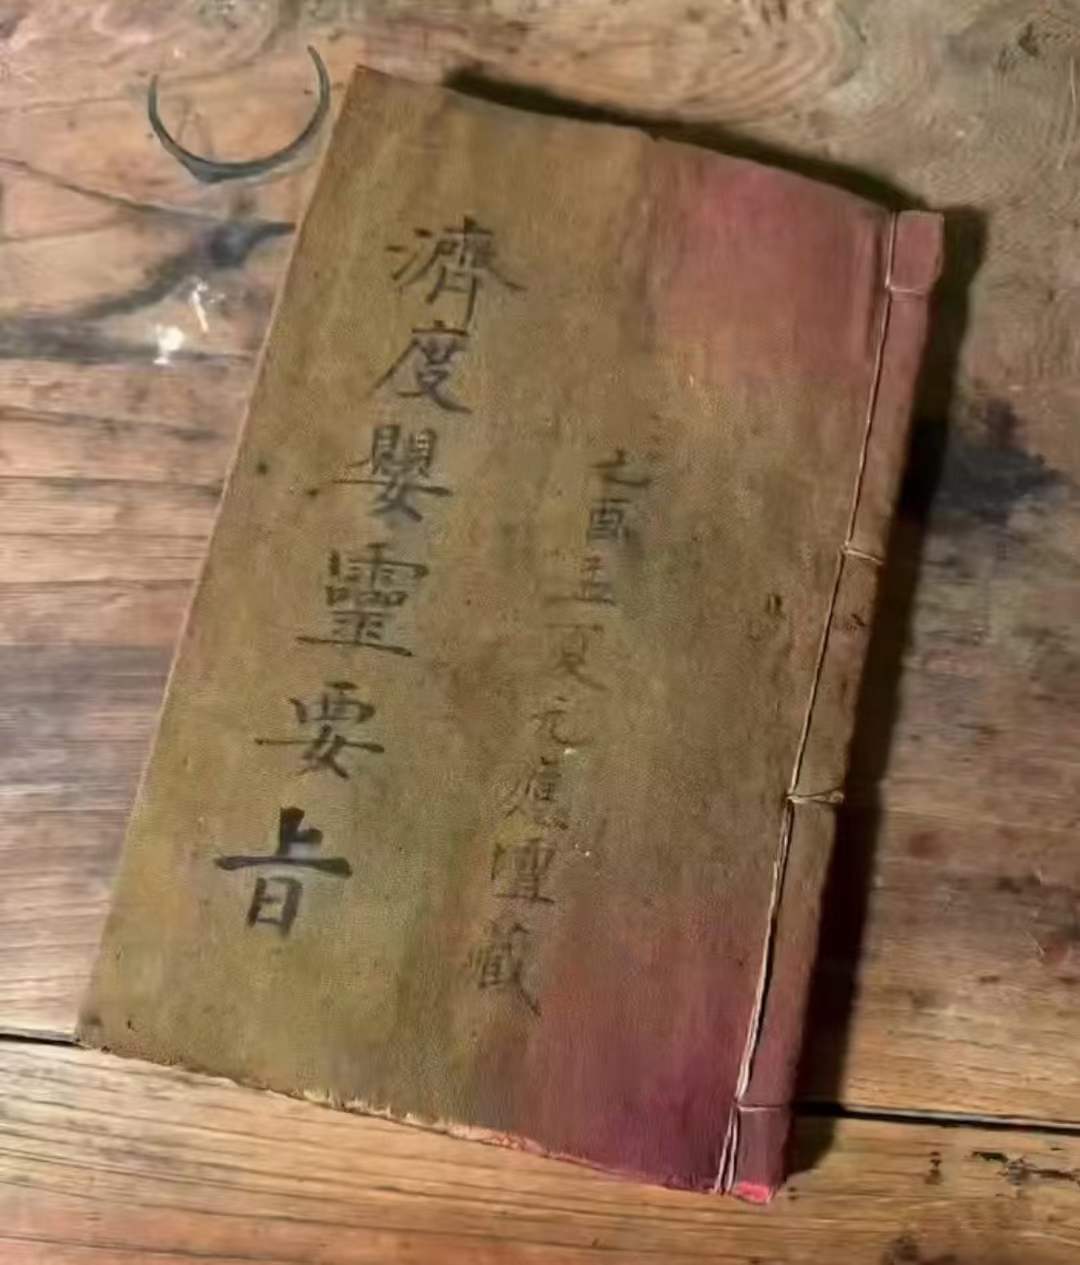 乙酉孟夏元藏
濟度嬰靈要旨